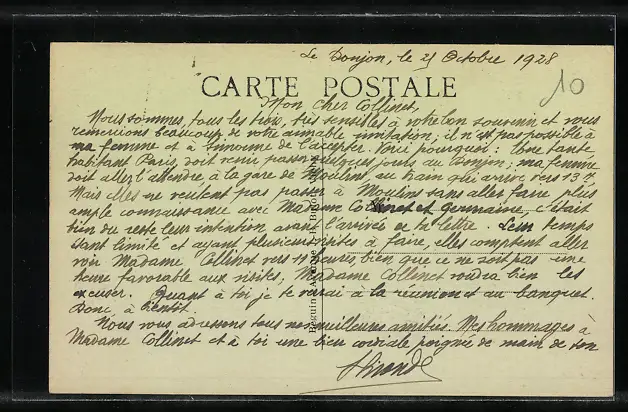 Le Donjon, le 21 Octobre 1928
10
CARTE POSTALE
Mon cher Collinet,
Nous sommes, tous les trois, très sensibles à votre bon souvenir et vous
remercions beaucoup de votre aimable invitation; il n'est pas possible à
ma femme et à de l'accepter. Voici pourquoi: Une tante
habitant Paris, doit venir passer quelques jours au Donjon; ma femme
doit aller l'attendre à la gare de Moulins, au train qui arrive vers 13 h.
Mais elles ne veulent pas passer à Moulins sans aller faire plus
ample connaissance avec Madame Collinet et Germaine, c'était
bien du reste leur intention avant l'arrivée de ta lettre. Leur temps
étant limité et ayant plusieurs visites à faire, elles comptent aller
voir Madame Collinet vers heures bien que ce ne soit pas une
heure favorable aux visites, Madame Collinet voudra bien les
excuser. Quant à toi je te verrai à la réunion et au banquet.
Donc à bientôt.
Nous vous adressons tous nos meilleures amitiés. Mes hommages à
Madame Collinet et à toi une bien cordiale poignée de main de ton